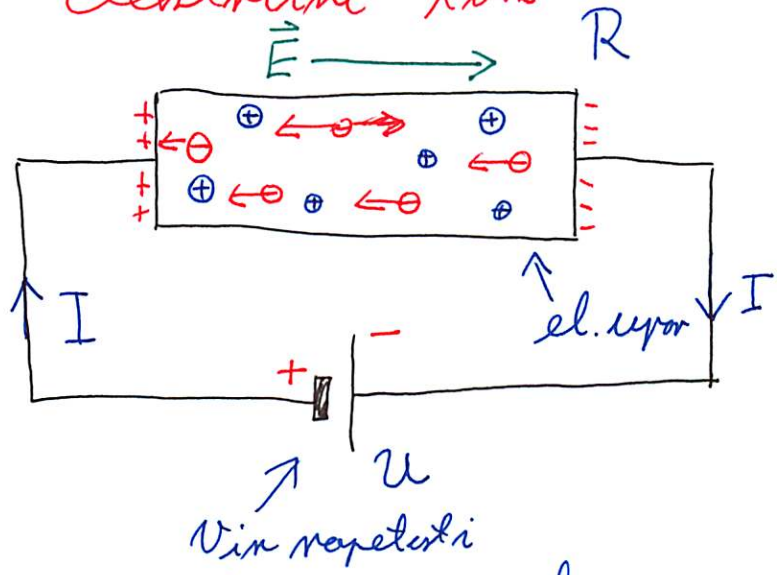 E R
I
I
el. upor
+ -
U
Vir napetosti